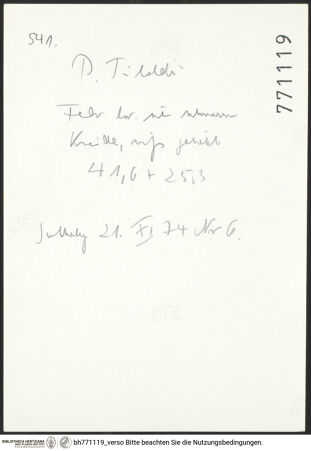 541.
771119
P. Tibaldi
Feder br. mit schwarzer
Kreide, weiß gehöht
41,6 x 25,3
Sotheby 21. XI 74 Nr 6.
BIBLIOTHECA HERTZIANA
bh771119_verso Bitte beachten Sie die Nutzungsbedingungen.